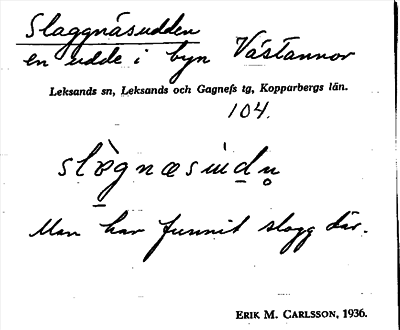 Slaggnäsudden
en udde i byn Västannor
Leksands sn, Leksands och Gagnefs tg, Kopparbergs län.
104.
slògnæsudu̥
Man har funnit slagg där.
ERIK M. CARLSSON, 1936.